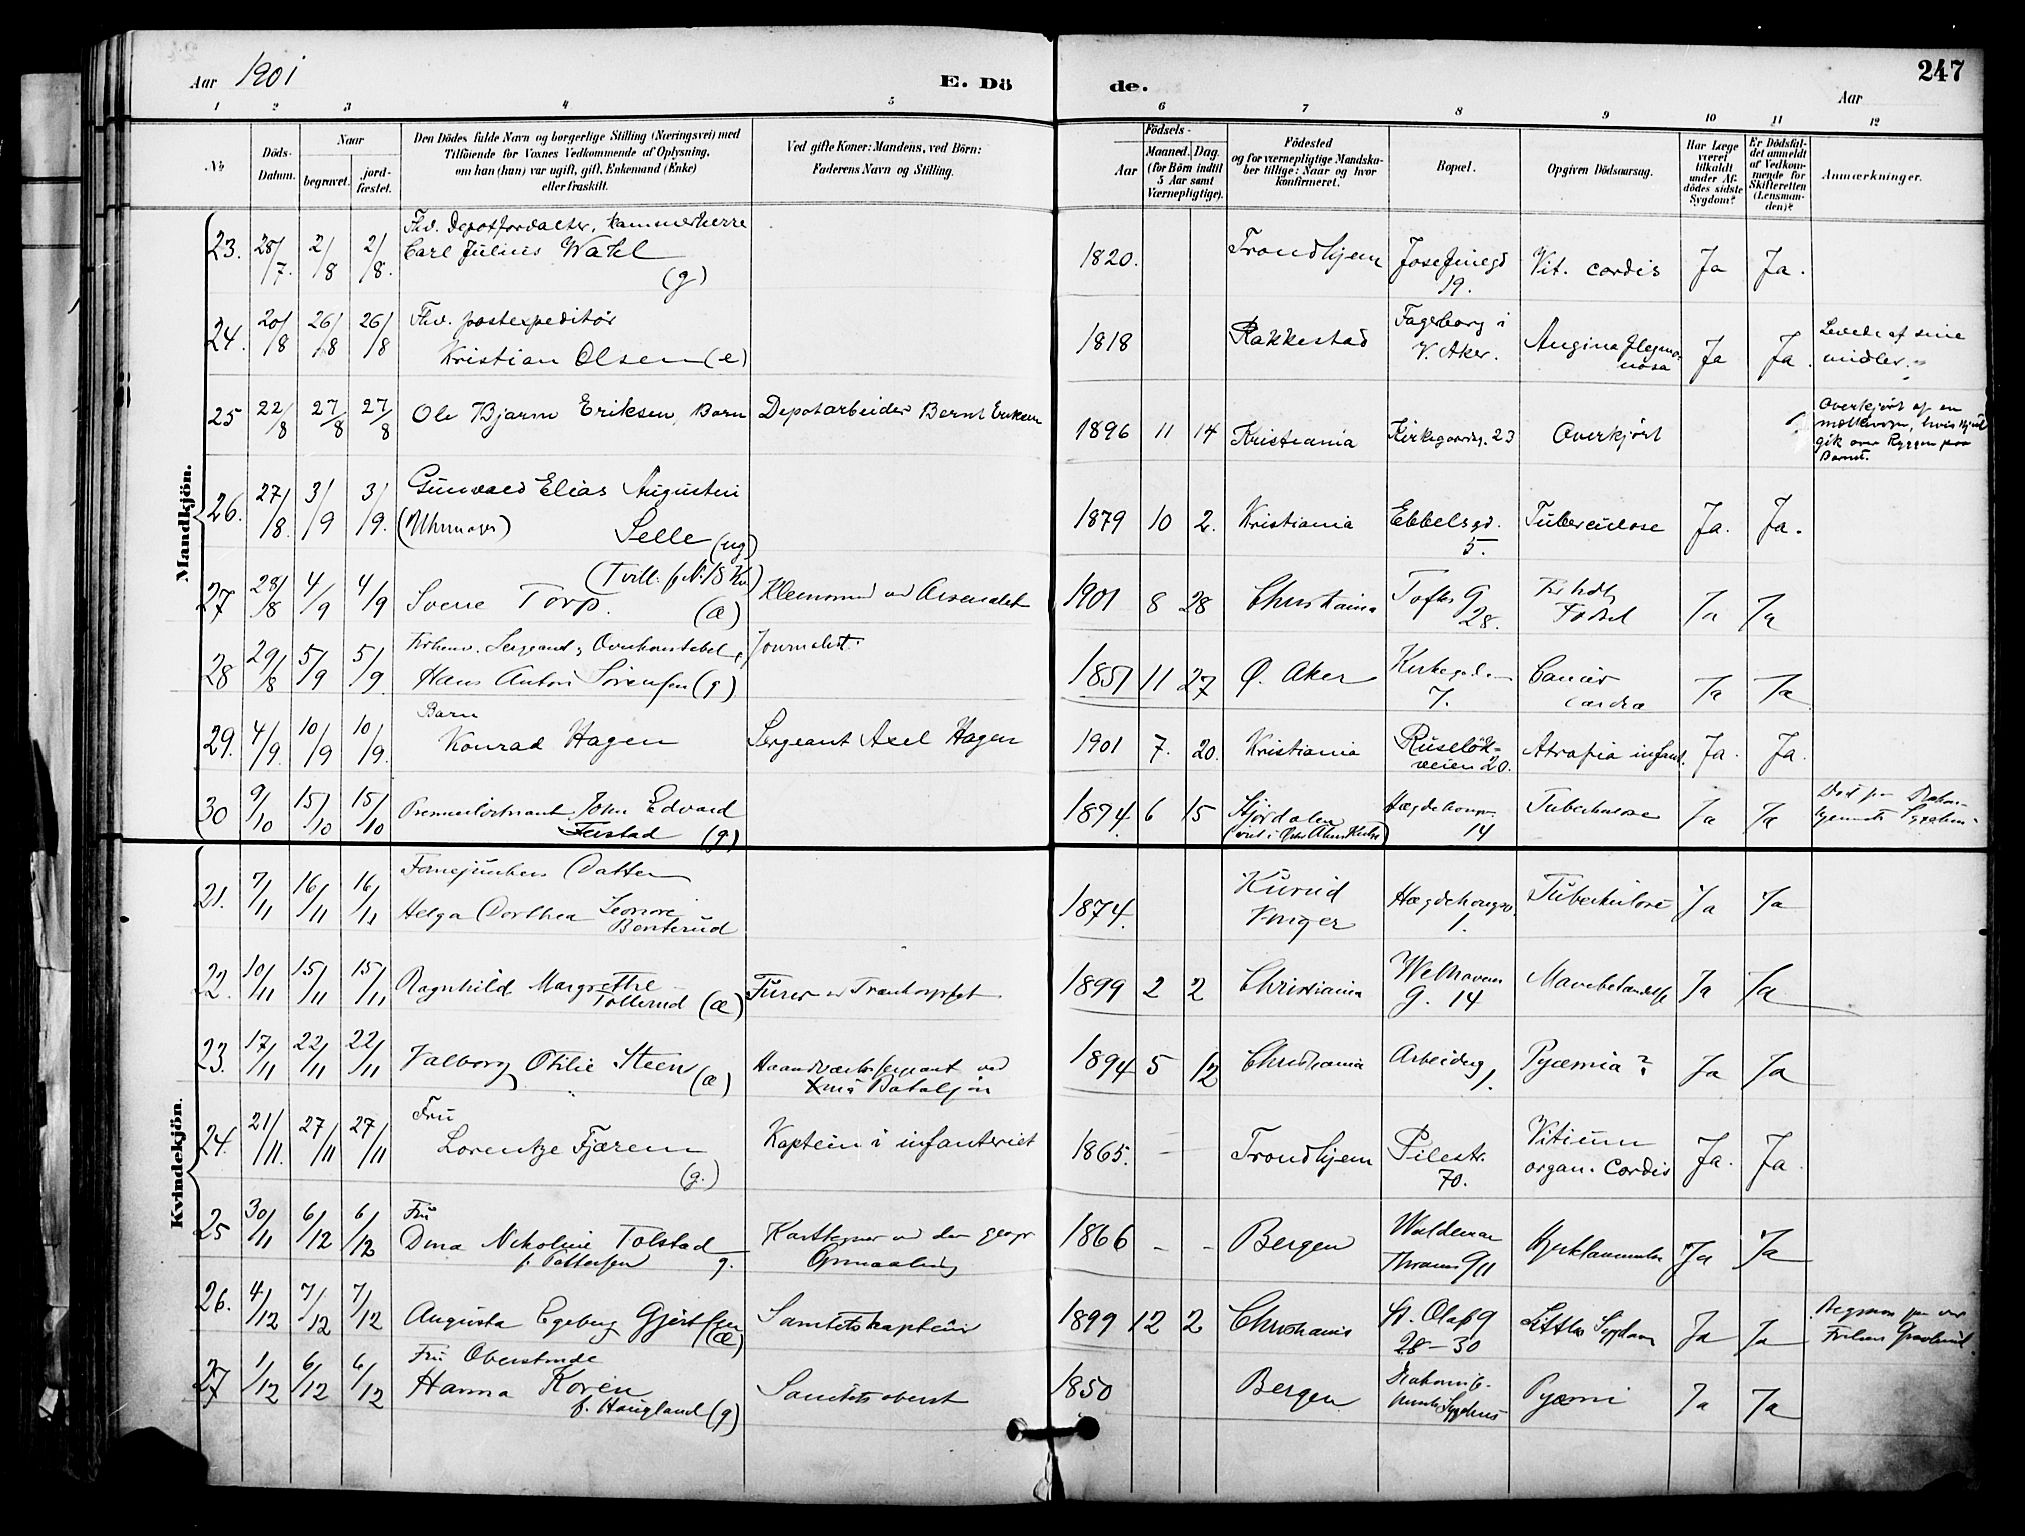 Aar 1901
E. Dö
de.
247
Aar
1 2 3 4 5 6 7 8 9 10 11 12
No.
Döds-Datum.
Naar
begravet.
jord-fæstet.
Den Dödes fulde Navn og borgerlige Stilling (Næringsvei) med
Tilföiende for Voxnes Vedkommende af Oplysning,
om han (hun) var ugift, gift, Enkemand (Enke)
eller fraskilt.
Ved gifte Koner: Mandens, ved Börn:
Faderens Navn og Stilling.
Födsels-
Aar
Maaned. Dag.
(for Börn indtil
5 Aar samt
Værnepligtige).
Födested
og for værnepligtige Mandska-
ber tillige: Naar og hvor
konfirmeret.
Bopæl.
Opgiven Dödsaarsag.
Har Læge
været
tilkaldt
under Af-
dödes sidste
Sygdom?
Er Dödsfal-
det anmeldt
af Vedkom-
mende for
Skifteretten
(Lensman-
den)?
Anmærkninger.
Mandkjön.
23. 28/7. 2/8 2/8. Fhv. Depotforvalter, kammerherre
Carl Julius Wahl (g)
1820. Trondhjem Josefinegd 19. Vit. cordis Ja Ja.
24. 20/8 26/8 26/8 Fhv. postexpeditør
Kristian Olsen (e)
1818 Rakkestad Fagerborg i V. Aker. Angina flegmo-nosa Ja Ja.
Levede af sine
midler.
25 22/8 27/8 27/8 Ole Bjarne Eriksen, Barn Depotarbeider Bernt Eriksen
1896 11 14 Kristiania Kirkegaardsg. 23 Overkjørt
Overkjørt af en
melkevogn, hvis Hjul
gik over Ryggen paa
Barnet.
26. 27/8. 3/9 3/9. Gunvald Elias Augustin
(Uhrmager) Selle (ug)
1879 10 2. Kristiania Ebbelsgd. 5. Tuberculose Ja. Ja.
27 28/8 4/9 4/9 (Tvill. f. N. 18 Kv.)
Sverre Torp. (æ)
1901 8 28 Christiania Toftes G 28. Fødsel Ja Ja
28 29/8 5/9 5/9. Forhenv. Sergeant, Overkonstabel, Journalist.
Hans Anton Sörensen (g)
1851 11 27 Ø. Aker Kirkegd. 7. Cancer Ja Ja
29. 4/9 10/9 10/9. Barn
Konrad Hagen Sergeant Axel Hagen
1901 7. 20. Kristiania Ruseløk-veien 20. Atrofia infant. Ja. Ja.
30 9/10 15/10 15/10 Premierløitnant John Edvard
(g)
1874. 6 15 Stjördalen Hægdehaugv. 14 Tuberkulose Ja Ja
Kvindekjön.
21. 7/11 16/11 16/11 Datter
Helga Dorthea Leonore
Benterud
1874. Hægdehaugsv. 1. Tuberkulose Ja Ja
22. 10/11 15/11 15/11 Ragnhild Margrethe
Tollerud (æ)
1899 2 2 Christiania Welhavens G. 14 Mavebetændelse Ja Ja
23. 17/11 22/11 22/11 Valborg Otilie Steen (æ) Haandværkssergeant ved
Bataljon
1894 5 12 Christiania Arbeiderg. 1. Pyæmia? Ja Ja
24. 21/11. 27/11 27/11 Fru
Lorentze Fjæren (g.) Kaptein i infanteriet
1865. — — Trondhjem Pilestr. 70. Vitium
organ. Cordis Ja. Ja.
25 30/11 6/12 6/12 Fru
Dina Nikoline Tolstad
f. Pettersen g. Karttegner ved den geogr
Opmaaling
1866 - - Bergen Waldemar
Thranes G 11 Hjerklammelse Ja Ja
26. 4/12 7/12 7/12 Augusta Egeberg Gjertsen (æ) Sanitetskaptein
1899 12 2 Christiania St. Olafs G
28-30 Ja Ja
27 1/12 6/12 6/12 Fru Oberstinde
Hanna Koren
f. Haugland (g) Sanitetsoberst
1850 Bergen Pyæmi Ja Ja